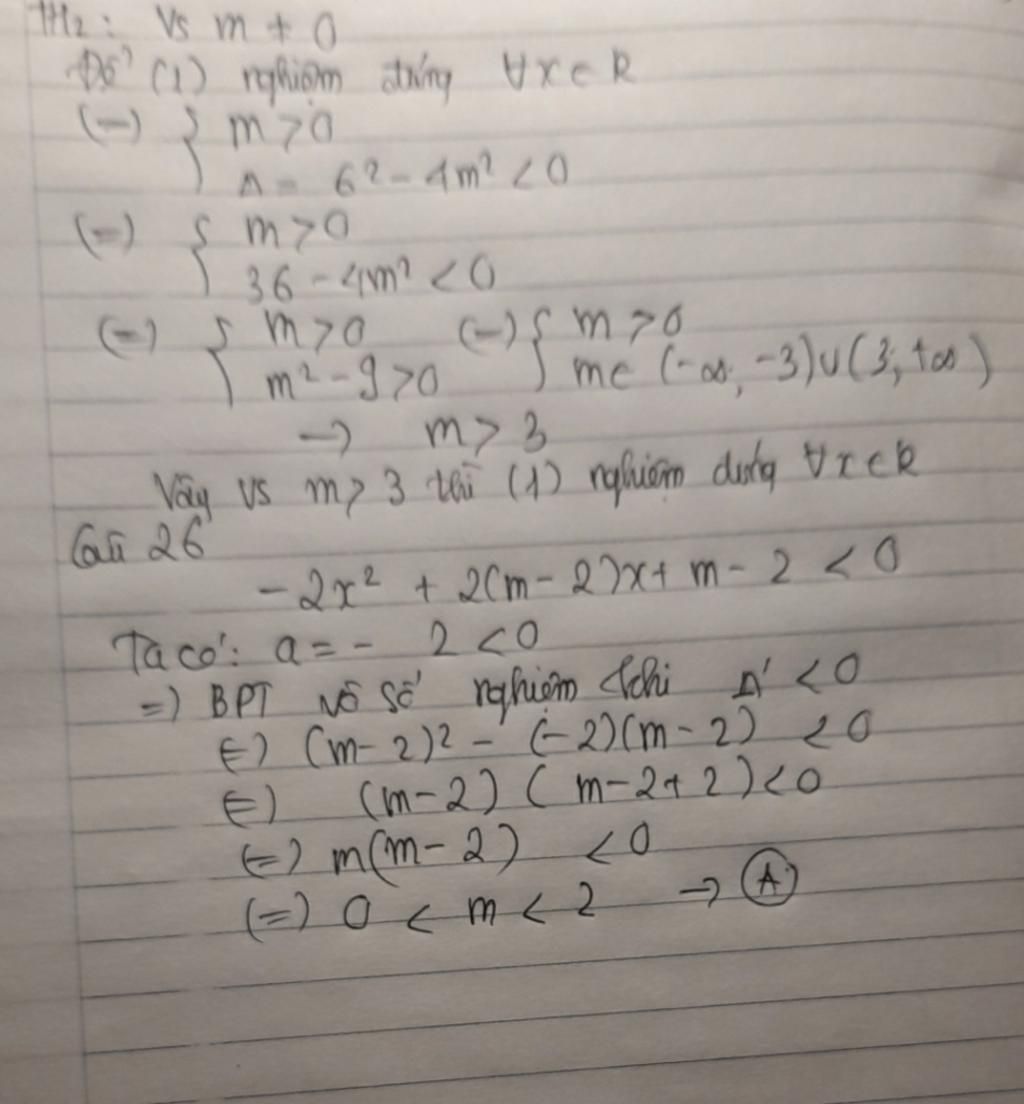 TH2: Vs m ≠ 0
Để (1) nghiệm đúng ∀x∈R
(=) { m > 0
Δ = 6² - 4m² < 0
(=) { m > 0
36 - 4m² < 0
(=) { m > 0 (=) { m > 0
m² - 9 > 0 m∈ (-∞; -3)∪(3; +∞)
→ m > 3
Vậy vs m > 3 thì (1) nghiệm đúng ∀x∈R
Câu 26
-2x² + 2(m - 2)x + m - 2 < 0
Ta có: a = - 2 < 0
=) BPT vô số nghiệm khi Δ' < 0
(=) (m - 2)² - (-2)(m - 2) < 0
(=) (m - 2) (m - 2 + 2) < 0
(=) m(m - 2) < 0
(=) 0 < m < 2 → A